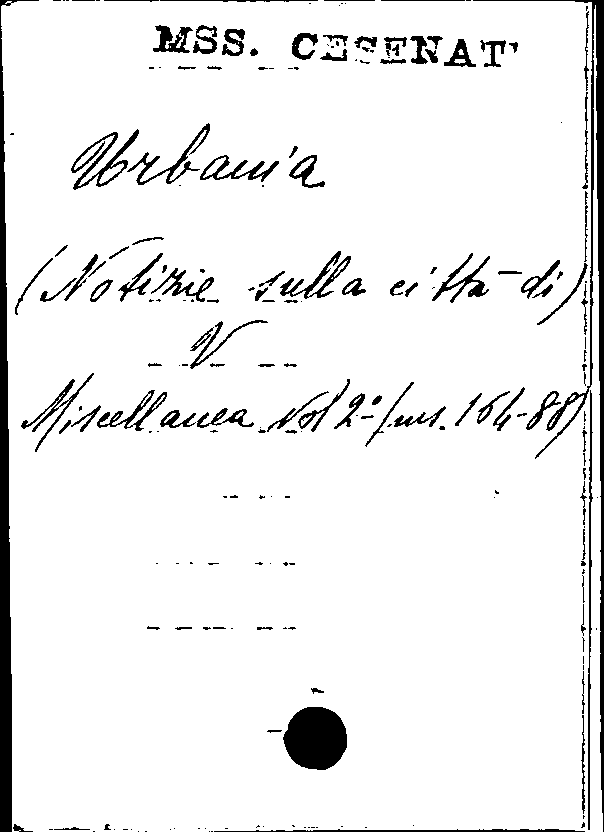 MSS. CESENAT
Urbania
(Notizie sulla città di)
V
Miscellanea Vol 2º (ms. 164-88)